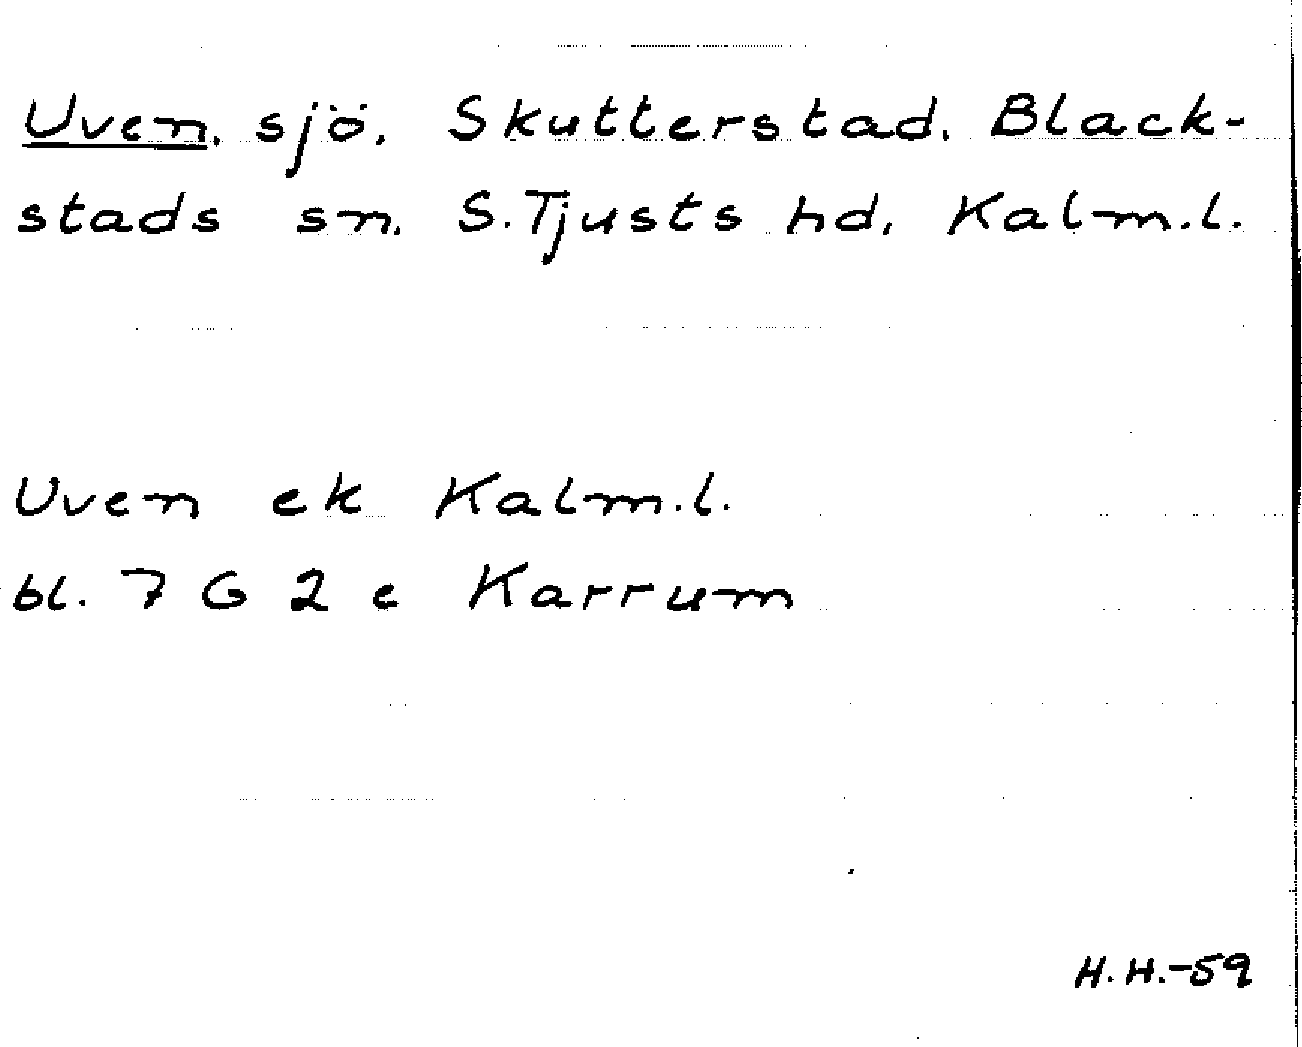 Uven, sjö, Skutterstad, Black-
stads sn, S. Tjusts hd, Kalm.l.
Uven ek Kalm.l.
bl. 7 G 2 e Karrum
H.H.-59